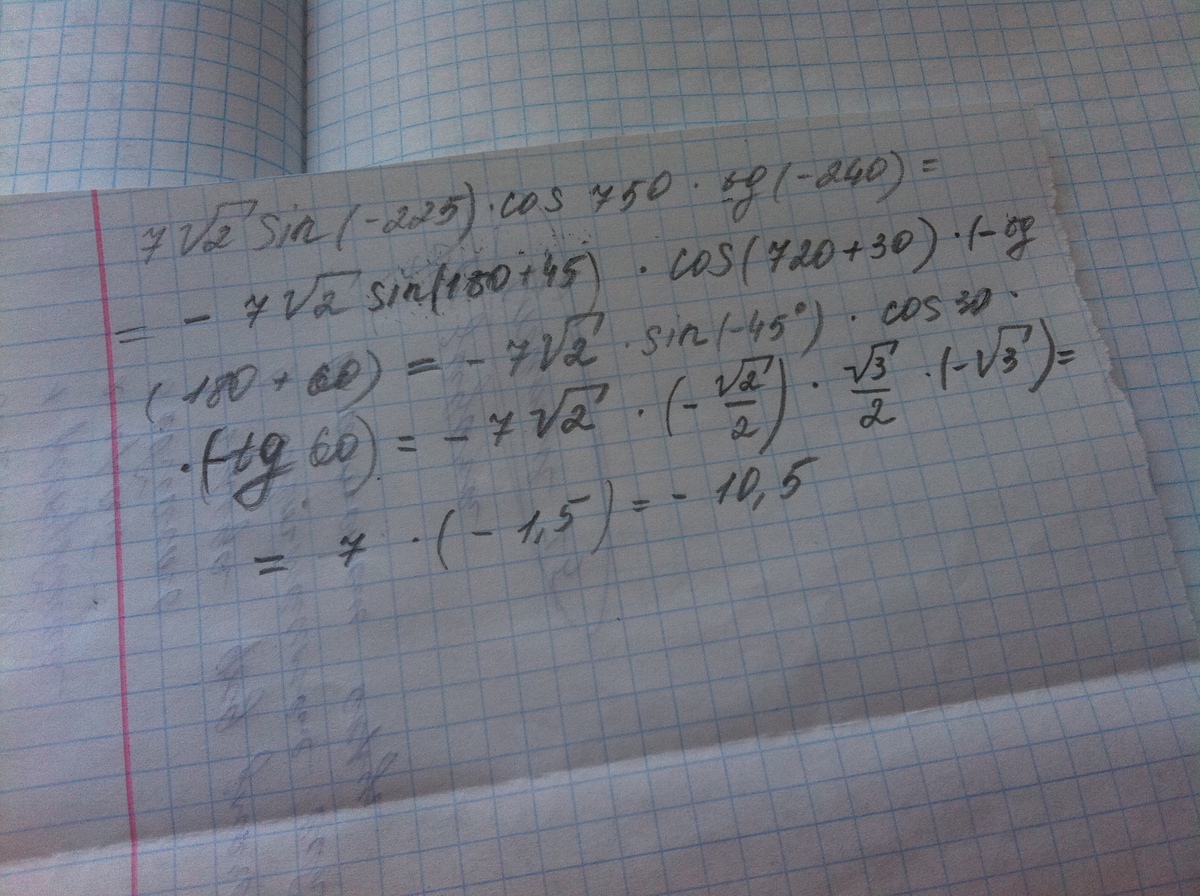 7√2 sin(-225)·cos 750·tg(-240)=
= - 7√2 sin(180+45) · cos(720+30)·(-tg
(180+60) = - 7√2 · sin(-45°) · cos 30 ·
·(-tg 60) = - 7√2 · (-√2/2) · √3/2 · (-√3)=
= 7 · (- 1,5) = - 10,5